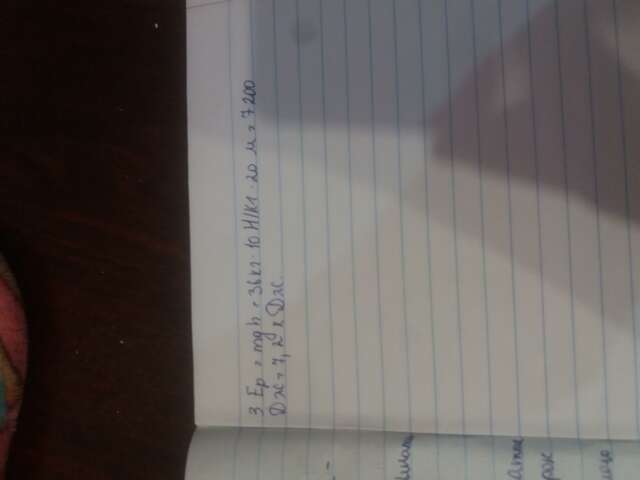 3 Eр = mgh = 36 кг · 10 Н/кг · 20 м = 7200
Дж = 7,2 к Дж.